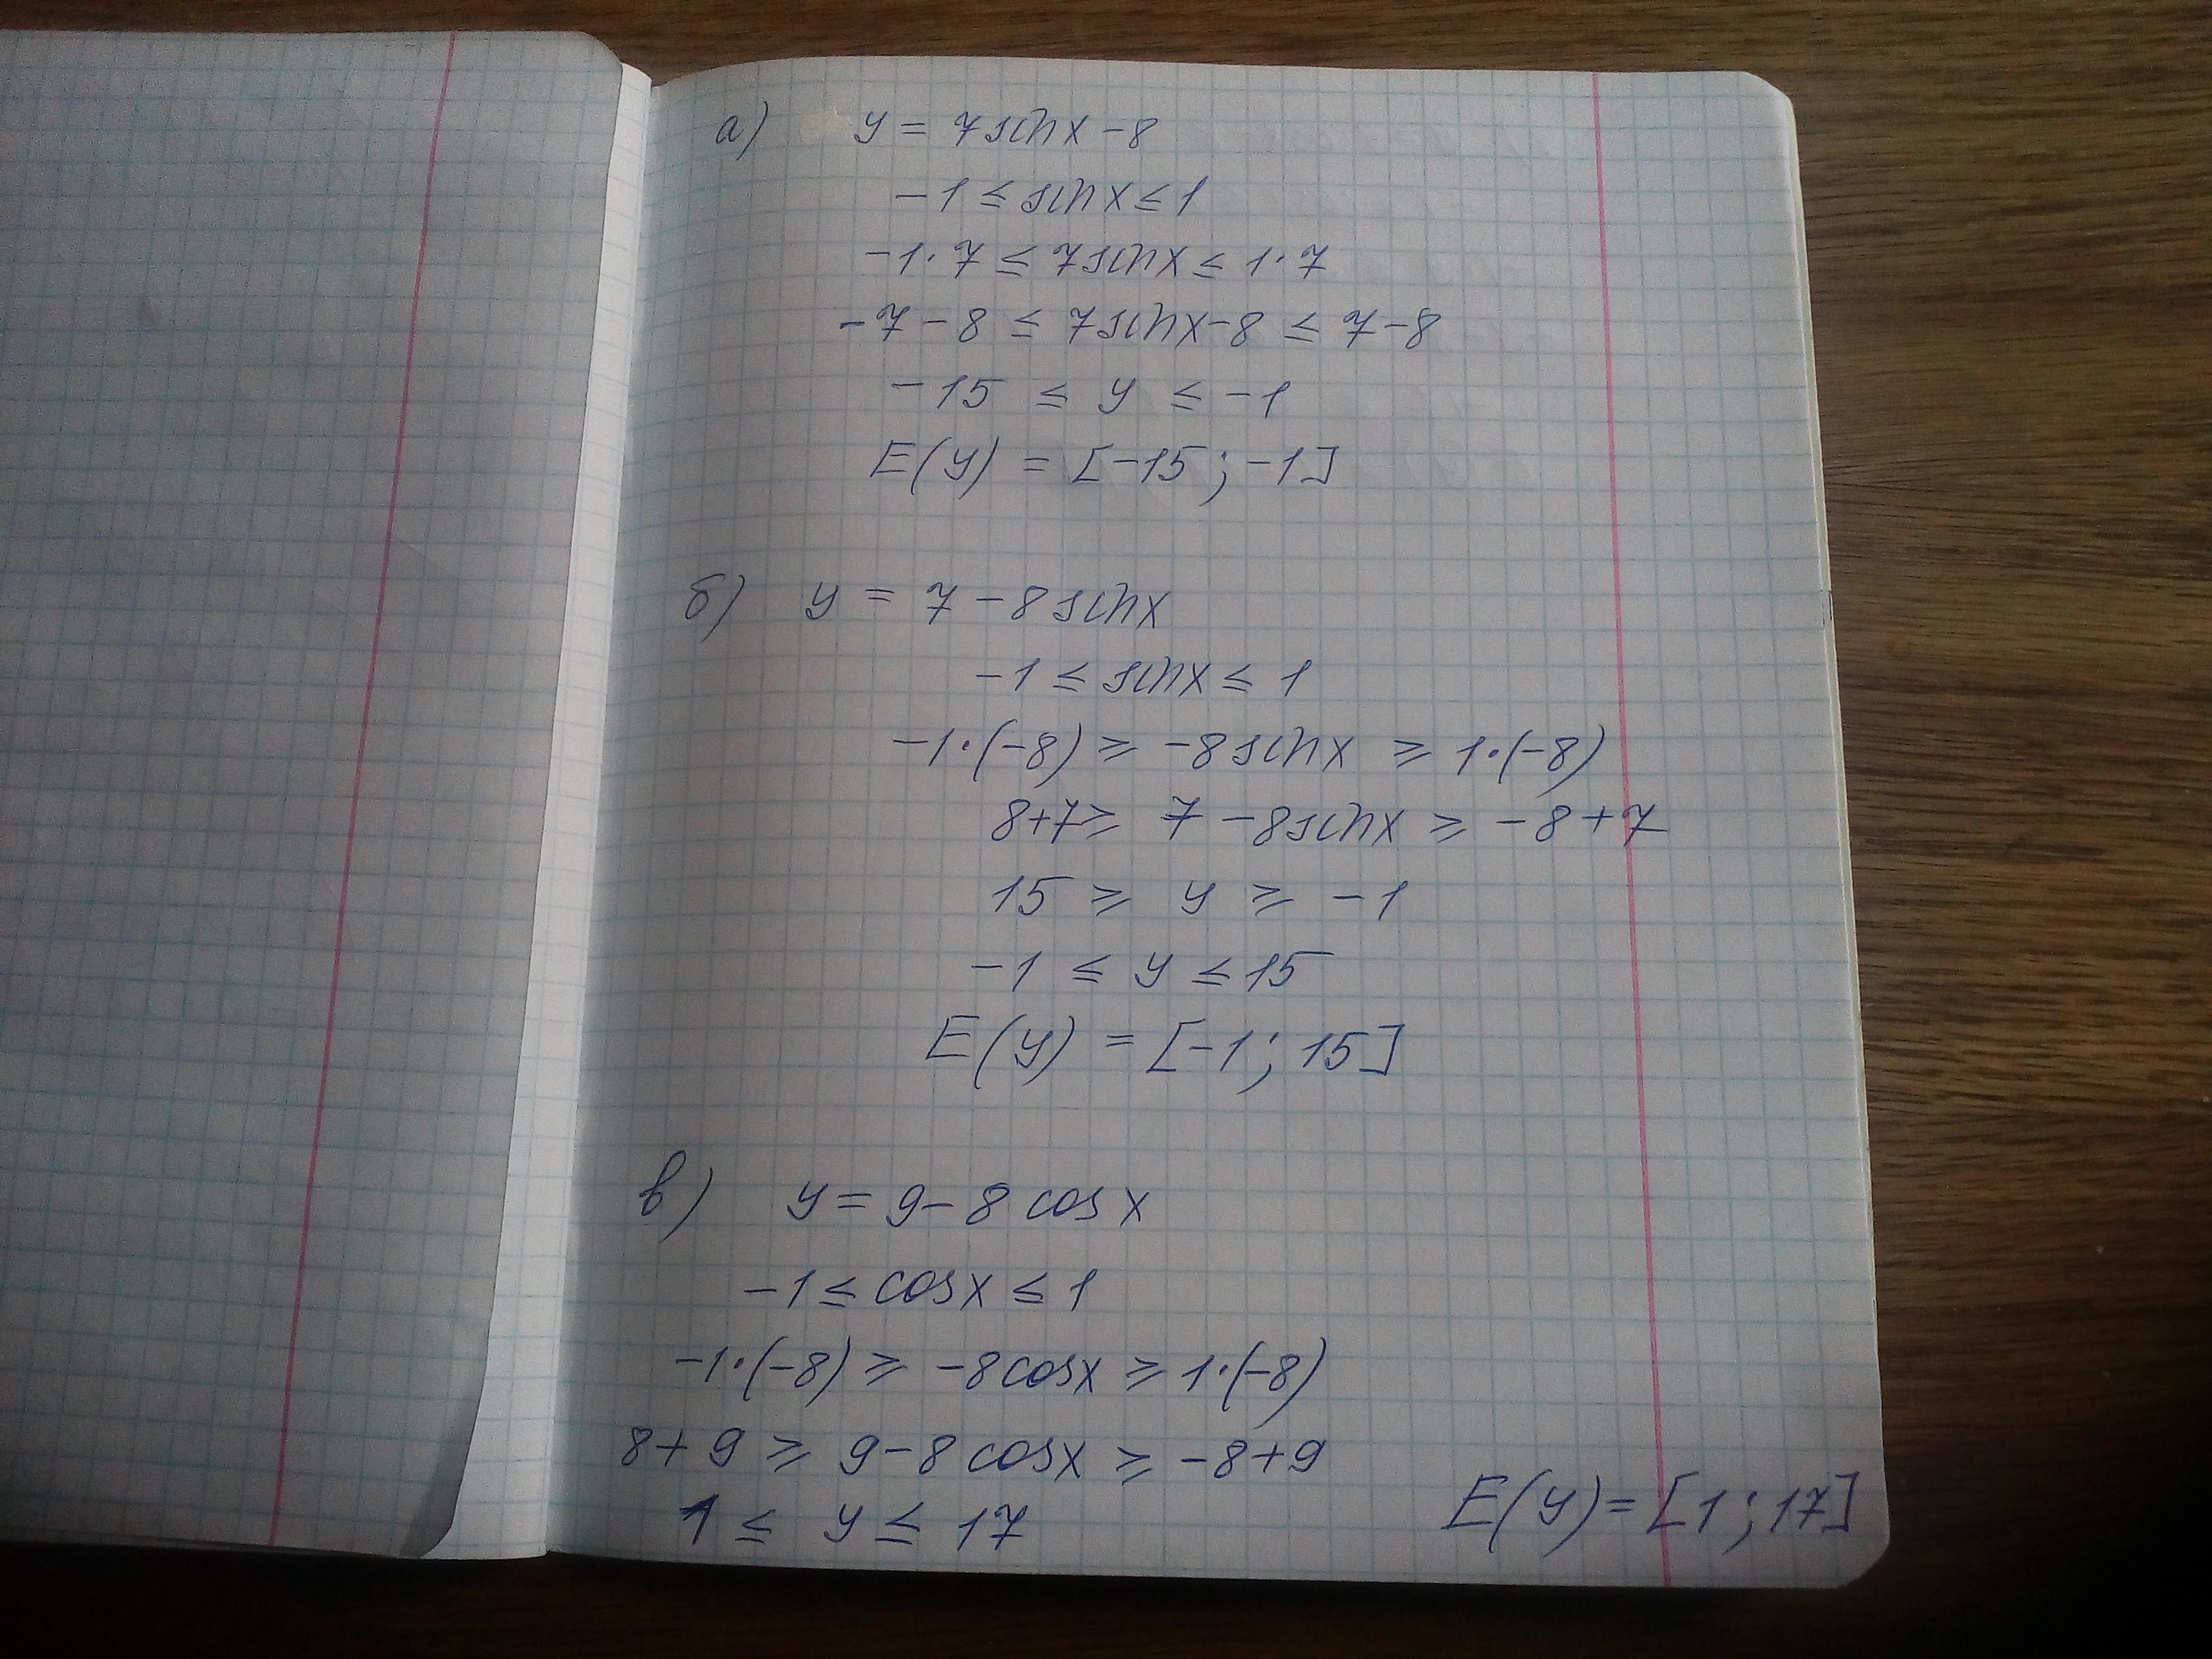 а) y = 7sinx - 8
-1 ≤ sinx ≤ 1
-1·7 ≤ 7sinx ≤ 1·7
-7-8 ≤ 7sinx-8 ≤ 7-8
-15 ≤ y ≤ -1
E(y) = [-15; -1]
б) y = 7 - 8sinx
-1 ≤ sinx ≤ 1
-1·(-8) ≥ -8sinx ≥ 1·(-8)
8+7 ≥ 7 - 8sinx ≥ -8+7
15 ≥ y ≥ -1
-1 ≤ y ≤ 15
E(y) = [-1; 15]
в) y = 9 - 8cosx
-1 ≤ cosx ≤ 1
-1·(-8) ≥ -8cosx ≥ 1·(-8)
8+9 ≥ 9-8cosx ≥ -8+9
1 ≤ y ≤ 17 E(y) = [1; 17]